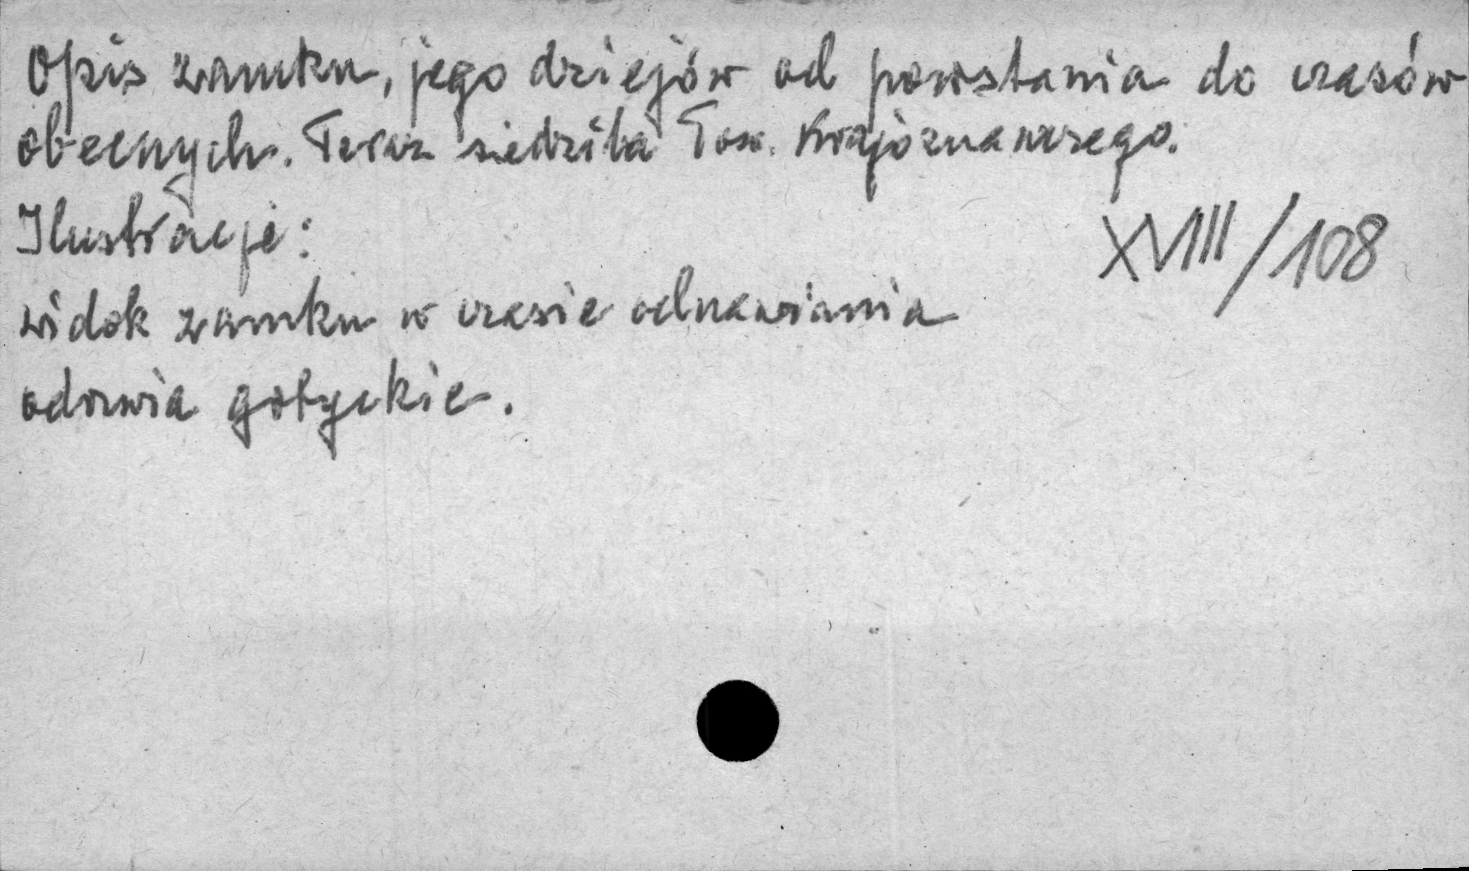 Opis zamku, jego dziejów od powstania do czasów
obecnych. Teraz siedziba Tow. Krajoznawczego.
Ilustracje:
XVIII/108
widok zamku w czasie odnawiania
odrzwia gotyckie.